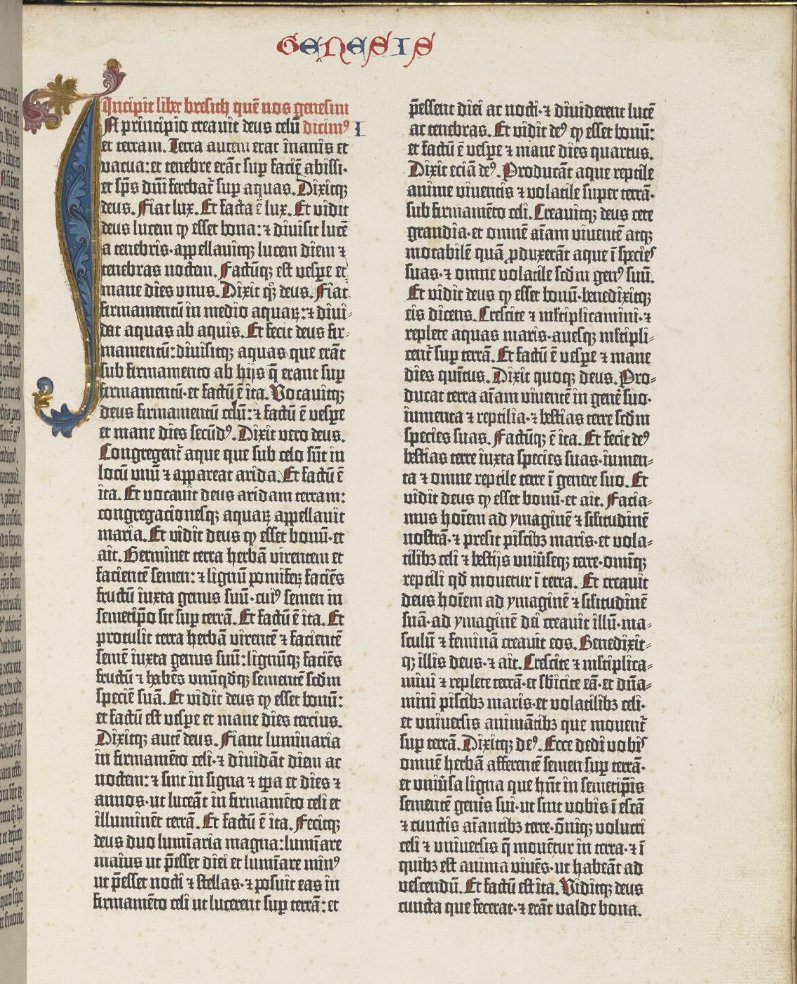 GENESIS
Incipit liber bresich quē nos genesim
In principio creavit deus celū dicimꝰ I
et terram. Terra autem erat inanis et
vacua: et tenebre erāt sup faciē abissi·
et sp̄s dn̄i ferebat᷑ sup aquas. Dixitqꝫ
deus. Fiat lux. Et facta ē lux. Et vidit
deus lucem ꝙ esset bona: ⁊ divisit lucē
a tenebris·appellavitqꝫ lucem diem ⁊
tenebras noctem. Factūqꝫ est vespe et
mane dies unus. Dixit qꝫ deus. Fiat
firmamentū in medio aquaꝝ: ⁊ divi-
dat aquas ab aquis. Et fecit deus fir-
mamentū: divisitqꝫ aquas que erāt
sub firmamento ab hijs q̄ erant sup
firmamentū·et factū ē ita. Vocavitqꝫ
deus firmamentū celū: ⁊ factū ē vespe
et mane dies secūdꝰ. Dixit vero deus.
Congregent᷑ aque que sub celo sūt in
locū unū ⁊ appareat arida. Et factū ē
ita. Et vocavit deus aridam terram:
congregacionesqꝫ aquaꝝ appellavit
maria. Et vidit deus ꝙ esset bonū·et
ait. Germinet terra herbā virentem et
facientē semen: ⁊ lignū pomifeꝝ faciēs
fructū iuxta genus suū·cuiꝰ semen in
semetip̄o sit sup terrā. Et factū ē ita. Et
protulit terra herbā virentē ⁊ facientē
semē iuxta genus suū: lignūqꝫ faciēs
fructū ⁊ habēs unūqdqꝫ sementē scdm
speciē suā. Et vidit deus ꝙ esset bonū:
et factū est vespe et mane dies tercius.
Dixitqꝫ autē deus. Fiant luminaria
in firmamēto celi·⁊ dividāt diem ac
noctem: ⁊ sint in signa ⁊ tp̄a et dies ⁊
annos·ut luceāt in firmamēto celi et
illuminēt terrā. Et factū ē ita. Fecitqꝫ
deus duo luminaria magna: lumīare
maius ut p̄esset diei et lumīare minꝰ
ut p̄esset nocti ⁊ stellas·⁊ posuit eas in
firmamēto celi ut lucerent sup terrā: et
p̄essent diei ac nocti·⁊ dividerent lucē
ac tenebras. Et vidit deꝰ ꝙ esset bonū:
et factū ē vespe ⁊ mane dies quartus.
Dixit eciā deꝰ. Producāt aque reptile
anime viventis ⁊ volatile super terrā·
sub firmamēto celi. Creavitqꝫ deus cete
grandia·et omnē aīam viventē atqꝫ
motabilē quā ꝓduxerāt aque ī speciēs
suas·⁊ omne volatile scdm genꝰ suū.
Et vidit deus ꝙ esset bonū·benedixitqꝫ
eis dicens. Crescite ⁊ mltiplicamini·⁊
replete aquas maris·avesqꝫ mltipli-
cent᷑ sup terrā. Et factū ē vespe ⁊ mane
dies quītus. Dixit quoqꝫ deus. Pro-
ducat terra aīam viventē in gen̄e suo·
iumenta ⁊ reptilia·⁊ bestias terre scdm
species suas. Factūqꝫ ē ita. Et fecit deꝰ
bestias terre iuxta species suas·iumen-
ta ⁊ omne reptile terre ī genere suo. Et
vidit deus ꝙ esset bonū·et ait. Facia-
mus hoīem ad ymaginē ⁊ silitudinē
nostrā·⁊ presit piscibꝫ maris·et vola-
tilibꝫ celi ⁊ bestijs univ̄seqꝫ terre·omīqꝫ
reptili qd movetur ī terra. Et creavit
deus hoīem ad ymaginē ⁊ silitudinē
suā·ad ymaginē dei creavit illū·ma-
sculū ⁊ feminā creavit eos. Benedixit-
qꝫ illis deus·⁊ ait. Crescite ⁊ mltiplica-
mini ⁊ replete terrā·et sbicite eā·et dn̄a-
mini piscibꝫ maris·et volatilibꝫ celi·
et universis animātibꝫ que movent᷑
sup terrā. Dixitqꝫ deꝰ. Ecce dedi vobis
omnē herbā afferentē semen sup terrā·
et univ̄sa ligna que hn̄t in semetip̄is
sementē gen̄is sui·ut sint vobis ī escā
⁊ cunctis aīantibꝫ terre·oīqꝫ volucri
celi ⁊ universis q̄ movētur in terra·⁊ ī
quibꝫ est anima vivēs·ut habeāt ad
vescendū. Et factū est ita. Viditqꝫ deus
cuncta que fecerat·⁊ erāt valde bona.